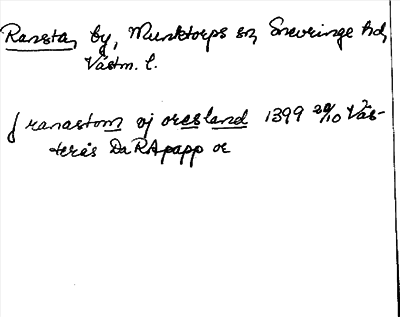 Ransta, by, Munktorps sn, Snevringe hd,
Västm. l.
j ranastom oj oresland 1399 29/10 Väs-
terås DaRApapp or